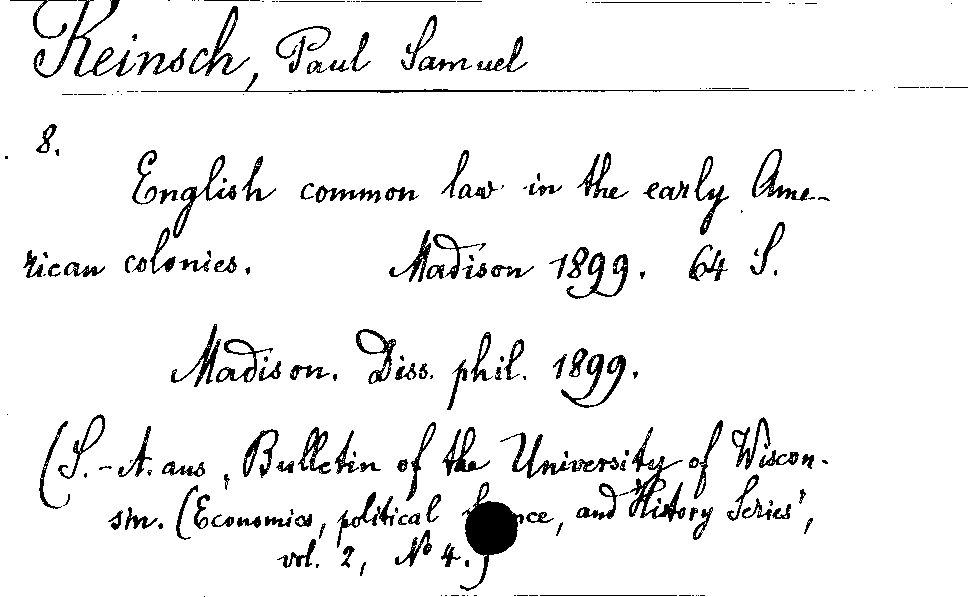 Reinsch, Paul Samuel
8.
English common law in the early Ame-
rican colonies. Madison 1899. 64 S.
Madison. Diss. phil. 1899.
(S.-A. aus, Bulletin of the University of Wiscon-
sin. (Economics, political and History Series',
vol. 2, No 4.)